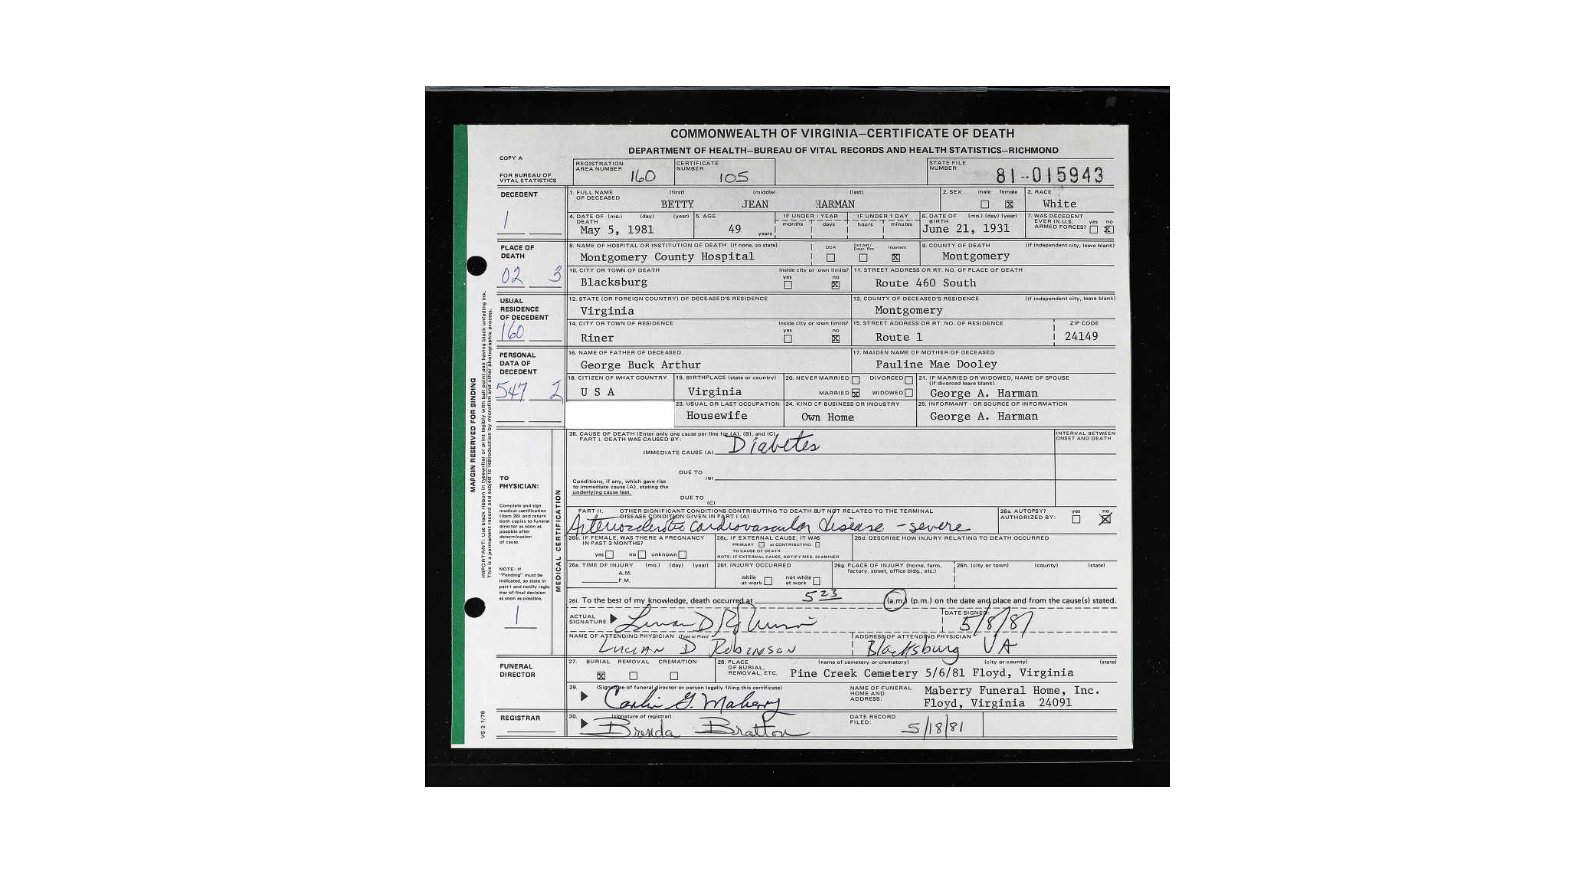 COMMONWEALTH OF VIRGINIA—CERTIFICATE OF DEATH
DEPARTMENT OF HEALTH—BUREAU OF VITAL RECORDS AND HEALTH STATISTICS—RICHMOND
COPY A
FOR BUREAU OF VITAL STATISTICS
REGISTRATION AREA NUMBER 160
CERTIFICATE NUMBER 105
STATE FILE NUMBER 81-015943
DECEDENT
1
1. FULL NAME OF DECEASED (first) (middle) (last)
BETTY JEAN HARMAN
2. SEX male female ☒
3. RACE White
4. DATE OF DEATH (mo.) (day) (year) May 5, 1981
5. AGE 49 years
IF UNDER 1 YEAR months days
IF UNDER 1 DAY hours minutes
6. DATE OF BIRTH (mo.) (day) (year) June 21, 1931
7. WAS DECEDENT EVER IN U.S. ARMED FORCES? yes no ☒
PLACE OF DEATH
02 3
8. NAME OF HOSPITAL OR INSTITUTION OF DEATH (if none, so state)
Montgomery County Hospital
DOA Inpatient ☒
9. COUNTY OF DEATH (if independent city, leave blank)
Montgomery
10. CITY OR TOWN OF DEATH inside city or town limits? yes no ☒
Blacksburg
11. STREET ADDRESS OR RT. NO. OF PLACE OF DEATH
Route 460 South
USUAL RESIDENCE OF DECEDENT
160
12. STATE (OR FOREIGN COUNTRY) OF DECEASED'S RESIDENCE
Virginia
13. COUNTY OF DECEASED'S RESIDENCE (if independent city, leave blank)
Montgomery
14. CITY OR TOWN OF RESIDENCE inside city or town limits? yes no ☒
Riner
15. STREET ADDRESS OR RT. NO. OF RESIDENCE ZIP CODE
Route 1 24149
PERSONAL DATA OF DECEDENT
547 2
16. NAME OF FATHER OF DECEASED
George Buck Arthur
17. MAIDEN NAME OF MOTHER OF DECEASED
Pauline Mae Dooley
18. CITIZEN OF WHAT COUNTRY
U S A
19. BIRTHPLACE (state or country)
Virginia
20. NEVER MARRIED ☐ DIVORCED ☐
MARRIED ☒ WIDOWED ☐
21. IF MARRIED OR WIDOWED, NAME OF SPOUSE (if divorced leave blank)
George A. Harman
23. USUAL OR LAST OCCUPATION
Housewife
24. KIND OF BUSINESS OR INDUSTRY
Own Home
25. INFORMANT - OR SOURCE OF INFORMATION
George A. Harman
MARGIN RESERVED FOR BINDING
MEDICAL CERTIFICATION
TO PHYSICIAN:
Complete and sign medical certification (item 26) and return both copies to funeral director as soon as possible after determination of cause.
NOTE: If "Pending" must be indicated, so state in part I and notify registrar of final decision as soon as possible.
1
26. CAUSE OF DEATH (Enter only one cause per line for (A), (B), and (C))
PART I. DEATH WAS CAUSED BY:
IMMEDIATE CAUSE (A) Diabetes
INTERVAL BETWEEN ONSET AND DEATH
DUE TO (B)
Conditions, if any, which gave rise to immediate cause (A), stating the underlying cause last.
DUE TO (C)
PART II. OTHER SIGNIFICANT CONDITIONS CONTRIBUTING TO DEATH BUT NOT RELATED TO THE TERMINAL DISEASE CONDITION GIVEN IN PART I (A)
Arteriosclerotic cardiovascular disease - severe
26a. AUTOPSY? AUTHORIZED BY: yes no ☒
26b. IF FEMALE, WAS THERE A PREGNANCY IN PAST 3 MONTHS?
yes ☐ no ☐ unknown ☐
26c. IF EXTERNAL CAUSE, IT WAS
PRIMARY ☐ or CONTRIBUTING ☐
TO CAUSE OF DEATH
NOTE: IF EXTERNAL CAUSE, NOTIFY MED. EXAMINER
26d. DESCRIBE HOW INJURY RELATING TO DEATH OCCURRED
26e. TIME OF INJURY (mo.) (day) (year)
A.M.
P.M.
26f. INJURY OCCURRED
while at work ☐ not while at work ☐
26g. PLACE OF INJURY (home, farm, factory, street, office bldg., etc.)
26h. (city or town) (county) (state)
26i. To the best of my knowledge, death occurred at 5 23 (a.m.) (p.m.) on the date and place and from the cause(s) stated.
ACTUAL SIGNATURE
DATE SIGNED 5/8/81
NAME OF ATTENDING PHYSICIAN (Type or Print)
Lucian D Robinson
ADDRESS OF ATTENDING PHYSICIAN
Blacksburg VA
FUNERAL DIRECTOR
27. BURIAL REMOVAL CREMATION
☒ ☐ ☐
28. PLACE OF BURIAL, REMOVAL, ETC. (name of cemetery or crematory) (city or county) (state)
Pine Creek Cemetery 5/6/81 Floyd, Virginia
29. (Signature of funeral director or person legally filing this certificate)
Carlin G. Maberry
NAME OF FUNERAL HOME AND ADDRESS:
Maberry Funeral Home, Inc.
Floyd, Virginia 24091
REGISTRAR
30. (signature of registrar)
Brenda Bratton
DATE RECORD FILED: 5/18/81
VS 2 1/78